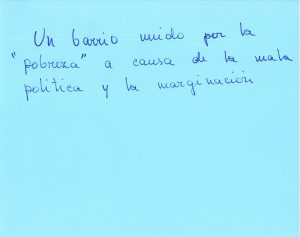 Un barrio unido por la
"pobreza" a causa de la mala
política y la marginación